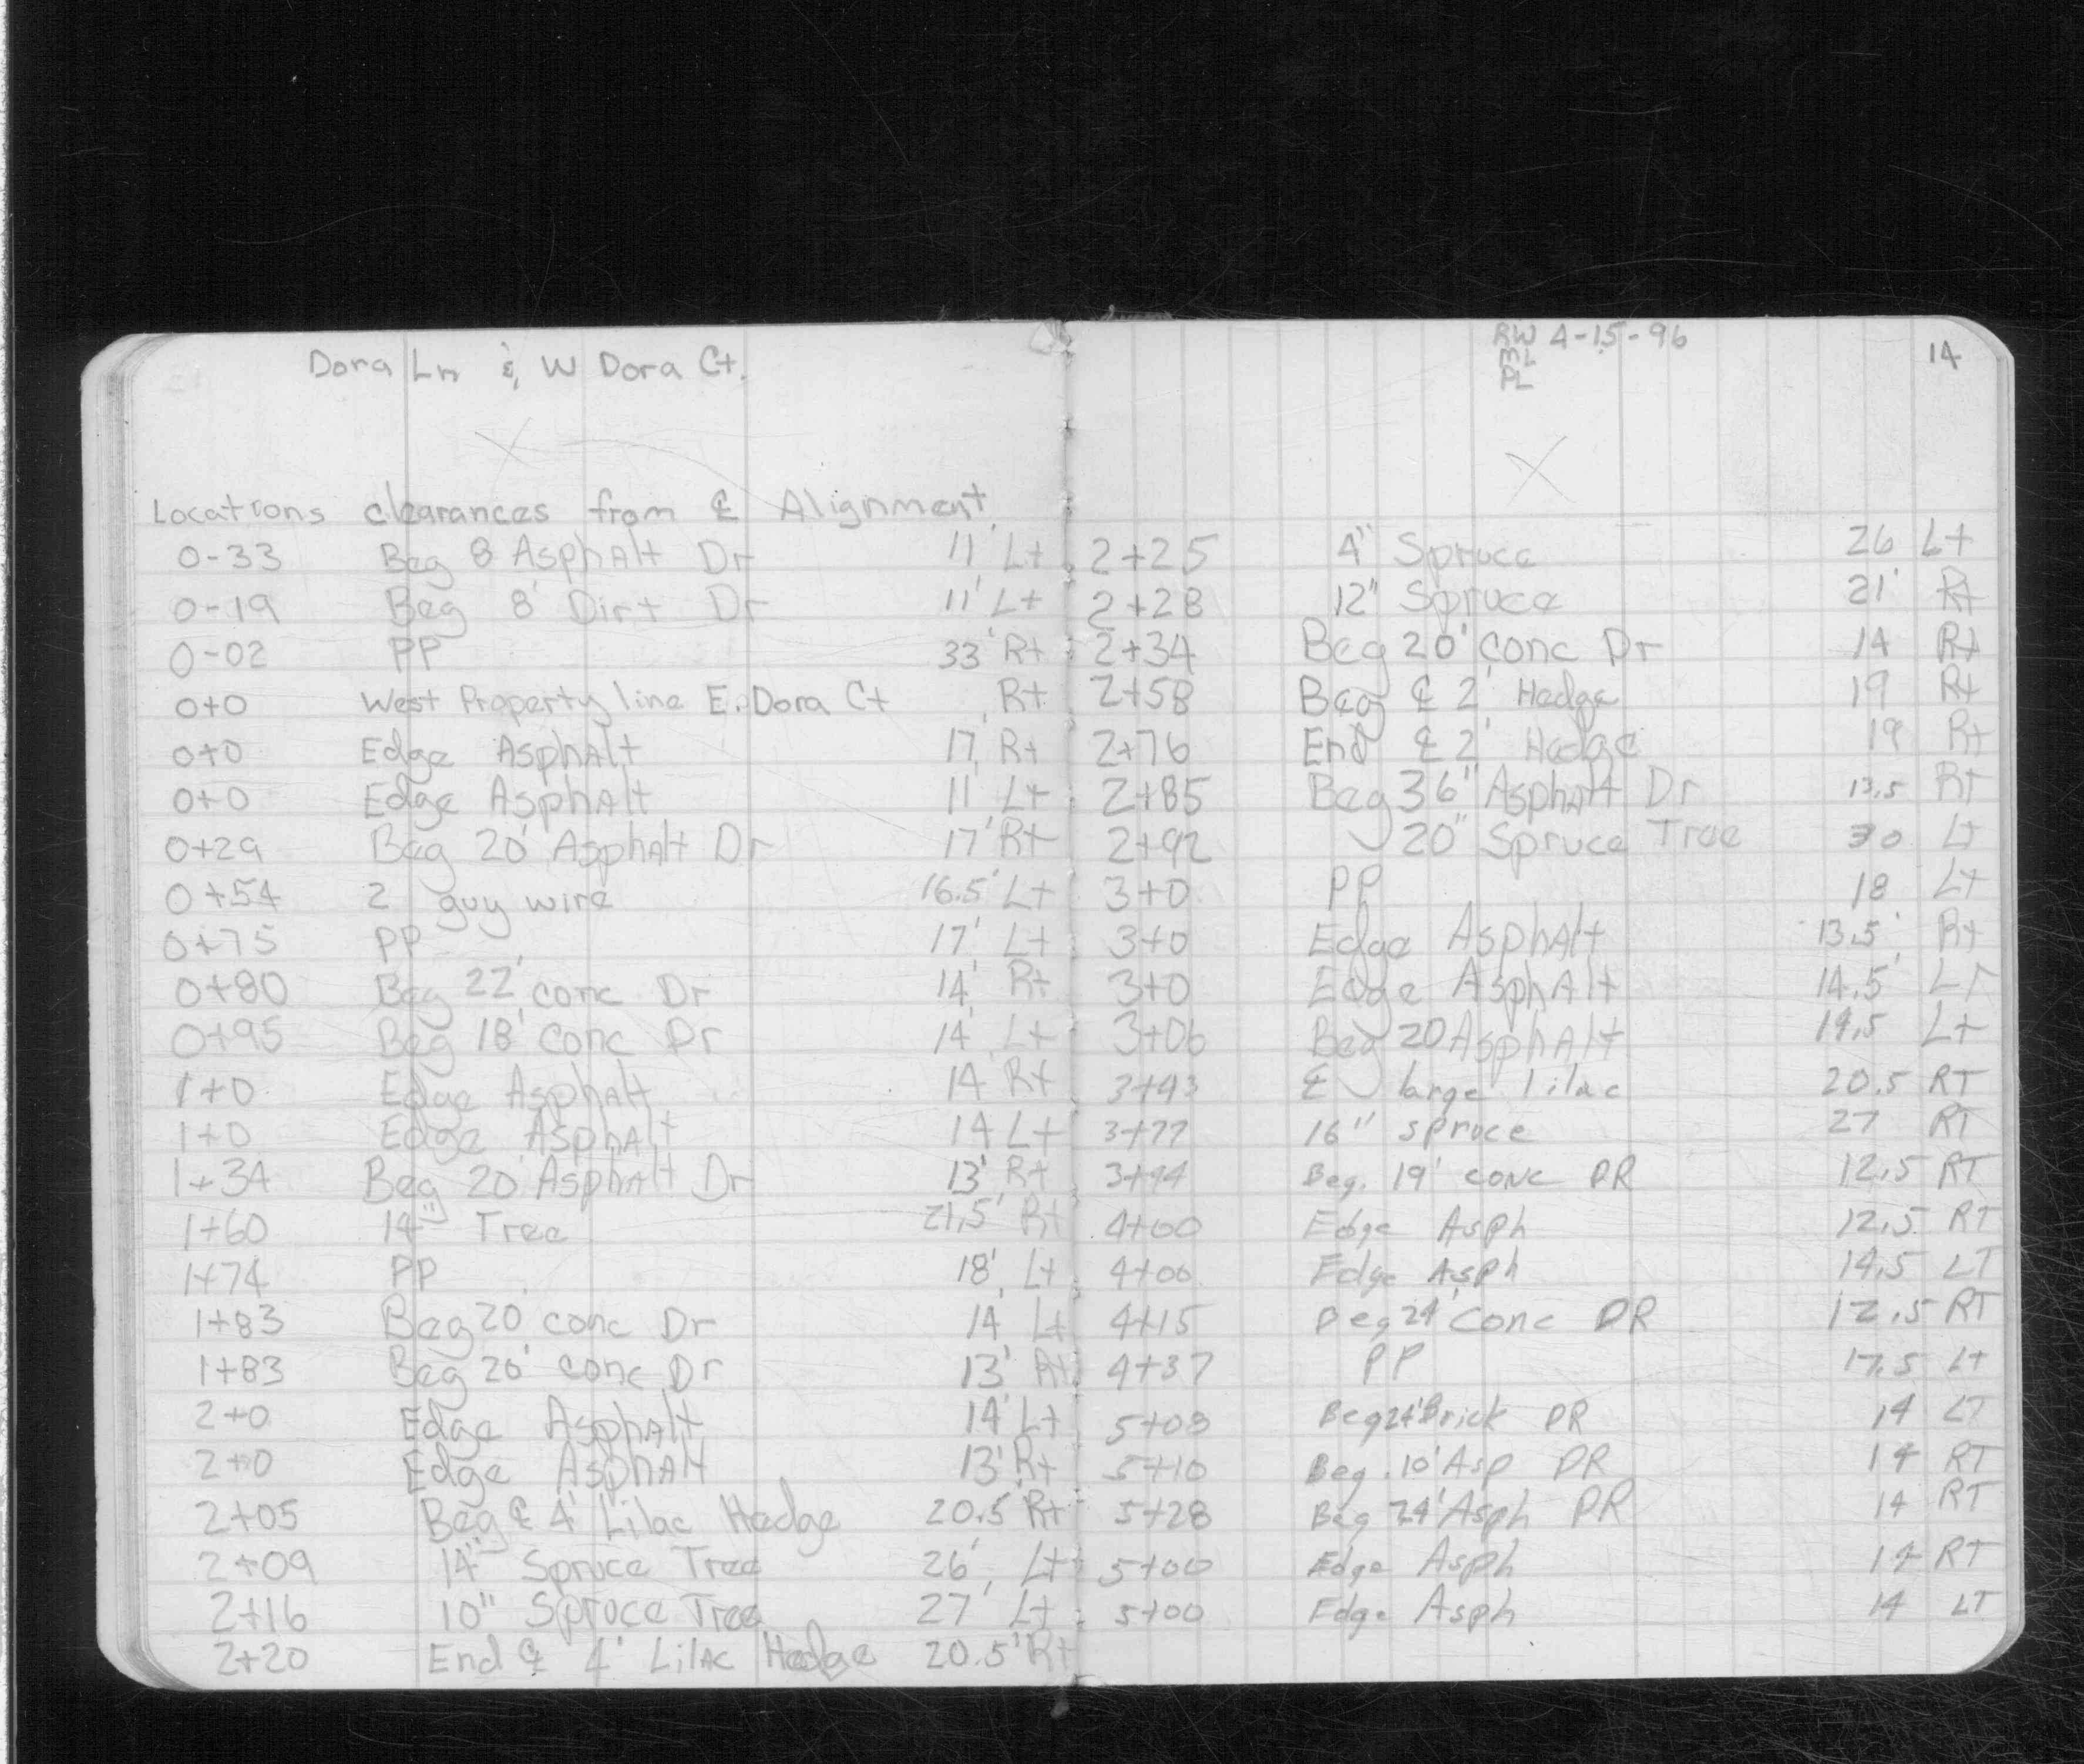 Dora Ln & W Dora Ct.
Locations clearances from ℄ Alignment
0-33 Beg 8 Asphalt Dr 11' Lt
0-19 Beg 8' Dirt Dr 11' Lt
0-02 PP 33' Rt
0+0 West Property line E. Dora Ct Rt
0+0 Edge Asphalt 17' Rt
0+0 Edge Asphalt 11' Lt
0+29 Beg 20' Asphalt Dr 17' Rt
0+54 2 guy wire 16.5' Lt
0+75 PP 17' Lt
0+80 Beg 22' conc Dr 14' Rt
0+95 Beg 18' conc Dr 14' Lt
1+0 Edge Asphalt 14 Rt
1+0 Edge Asphalt 14 Lt
1+34 Beg 20' Asphalt Dr 13' Rt
1+60 14" Tree 21.5' Rt
1+74 PP 18' Lt
1+83 Beg 20' conc Dr 14' Lt
1+83 Beg 26' conc Dr 13' Rt
2+0 Edge Asphalt 14' Lt
2+0 Edge Asphalt 13' Rt
2+05 Beg ℄ 4' Lilac Hedge 20.5' Rt
2+09 14" Spruce Tree 26' Lt
2+16 10" Spruce Tree 27' Lt
2+20 End ℄ 4' Lilac Hedge 20.5' Rt
RW 4-15-96
ML
PL
14
2+25 4" Spruce 26 Lt
2+28 12" Spruce 21' Rt
2+34 Beg 20' conc Dr 14 Rt
2+58 Beg ℄ 2' Hedge 19 Rt
2+76 End ℄ 2' Hedge 19 Rt
2+85 Beg 36" Asphalt Dr 13.5 Rt
2+92 20" Spruce Tree 30 Lt
3+0 PP 18 Lt
3+0 Edge Asphalt 13.5' Rt
3+0 Edge Asphalt 14.5' Lt
3+06 Beg 20 Asphalt 14.5 Lt
3+43 ℄ large lilac 20.5 RT
3+77 16" spruce 27 RT
3+94 Beg. 19' conc DR 12.5 RT
4+00 Edge Asph 12.5 RT
4+00 Edge Asph 14.5 LT
4+15 Beg 24' Conc DR 12.5 RT
4+37 PP 17.5 Lt
5+08 Beg 24' Brick DR 14 LT
5+10 Beg. 10' Asp DR 14 RT
5+28 Beg 24' Asph DR 14 RT
5+00 Edge Asph 14 RT
5+00 Edge Asph 14 LT